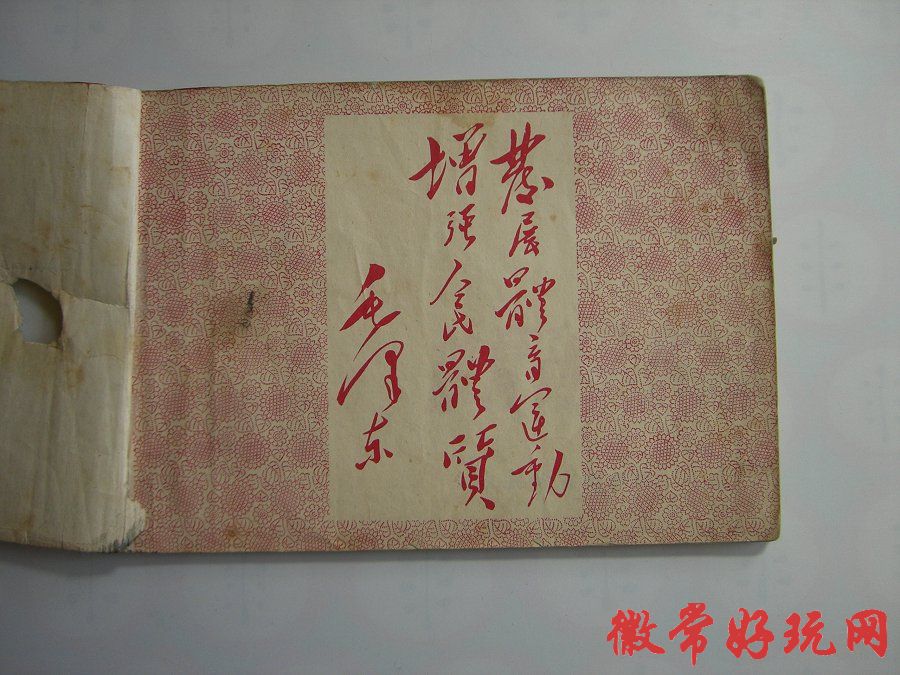 發展體育運動
增强人民體質
毛澤东
徽常好玩网